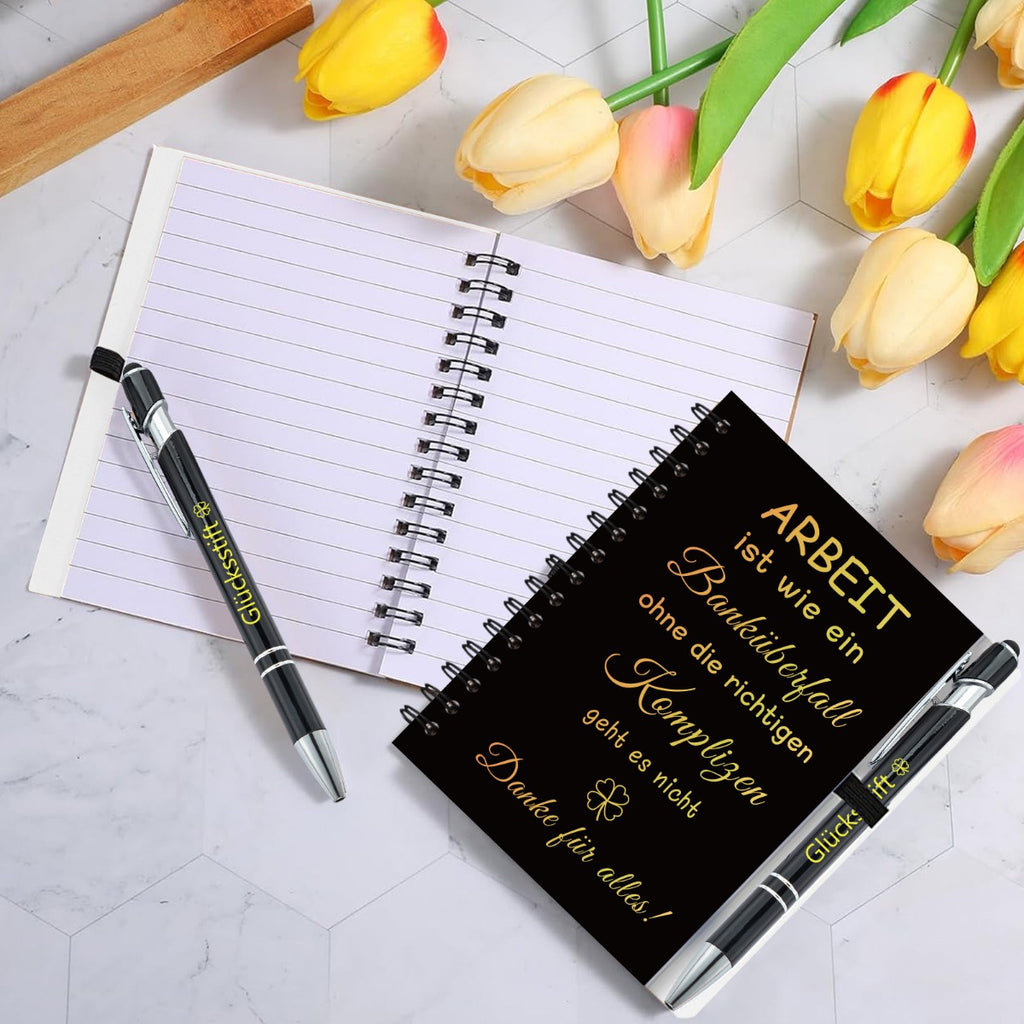 Glücksstift
ARBEIT
ist wie ein
Banküberfall
ohne die richtigen
Komplizen
geht es nicht
Danke für alles!